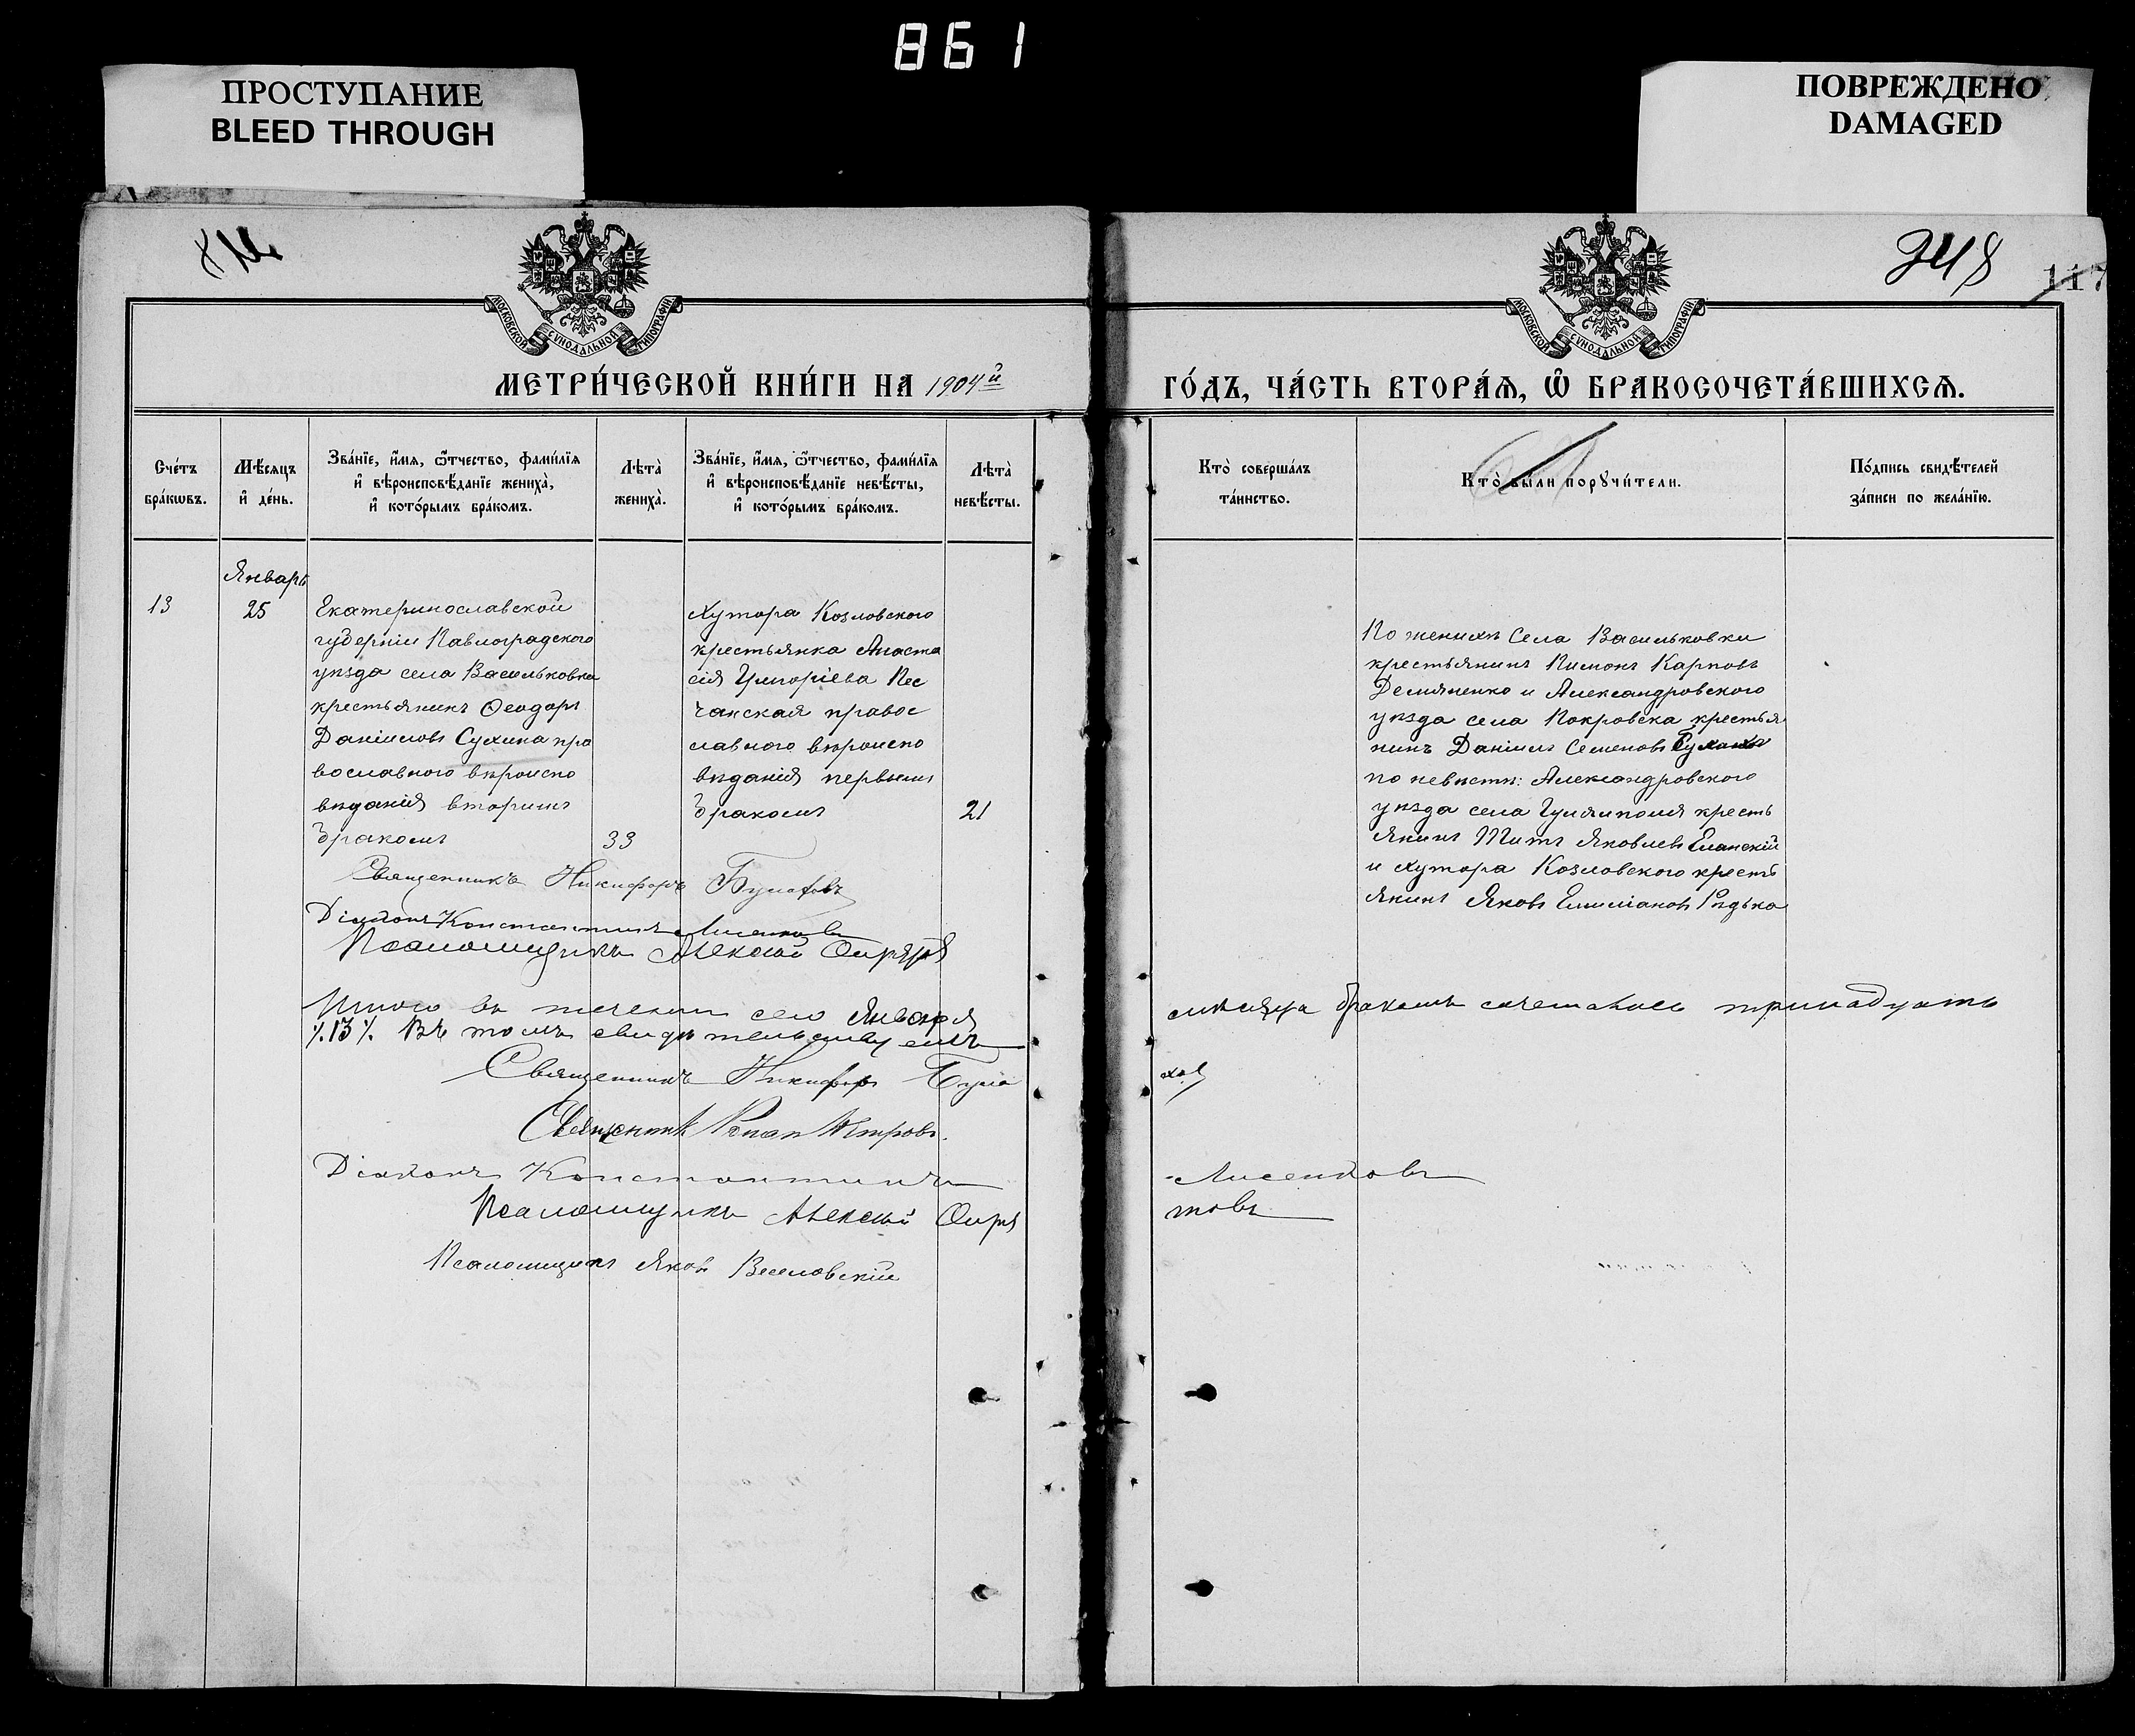 861
ПРОСТУПАНИЕ
BLEED THROUGH
ПОВРЕЖДЕНО
DAMAGED
348
117
МОСКОВСКОЙ СѴНОДАЛЬНОЙ ТИПОГРАФІИ
МОСКОВСКОЙ СѴНОДАЛЬНОЙ ТИПОГРАФІИ
МЕТРИ́ЧЕСКОЙ КНИ́ГИ НА 1904й
ГО́ДЪ, ЧА́СТЬ ВТОРА́Ѧ, Ѽ БРАКОСОЧЕТА́ВШИХСѦ.
Сче́тъ
бра́кѡвъ.
Мѣ́сяцъ
и҆ де́нь.
Зва́нїе, и҆́мѧ, ѻ҆́тчество, фами́лїѧ
и҆ вѣроисповѣ́данїе жениха̀,
и҆ кото́рымъ бра́комъ.
Лѣта̀
жениха̀.
Зва́нїе, и҆́мѧ, ѻ҆́тчество, фами́лїѧ
и҆ вѣроисповѣ́данїе невѣ́сты,
и҆ кото́рымъ бра́комъ.
Лѣта̀
невѣ́сты.
Кто̀ соверша́лъ
та́инство.
Кто̀ бы́ли порꙋчи́тели.
По́дпись свидѣ́телей
за́писи по жела́нїю.
Январь
13
25
Екатеринославской
губерніи Павлоградскаго
уѣзда села Васильковки
крестьянинъ Ѳеодоръ
Даніиловъ Сухина пра
вославнаго вѣроиспо
вѣданія вторымъ
бракомъ
33
хутора Козловскаго
крестьянка Анаста
сія Григоріева Пес
чанская правос
лавнаго вѣроиспо
вѣданія первымъ
бракомъ
21
По женихѣ: Села Васильковки
крестьянинъ Пимонъ Карповъ
Демяненко и Александровскаго
уѣзда села Покровска крестья
нинъ Даніилъ Семеновъ
по невѣстѣ: Александровскаго
уѣзда села Гуляйполя кресть
янинъ Титъ Яковлевъ Еланскій
и хутора Козловскаго кресть
янинъ Яковъ Емиліановъ Рѣдька
Священникъ Никифоръ Булаховъ
Діаконъ Константинъ Лисенковъ
Псаломщикъ Алексій
Итого въ теченіи сего Января мѣсяца бракомъ сочеталось тринадцать
/.13/. Въ томъ свидѣтельствуемъ
Священникъ Никифоръ Була ховъ
Священникъ Петровъ.
Діаконъ Константинъ Лисенковъ
Псаломщикъ Алексій
Псаломщикъ Яковъ Веселовскій